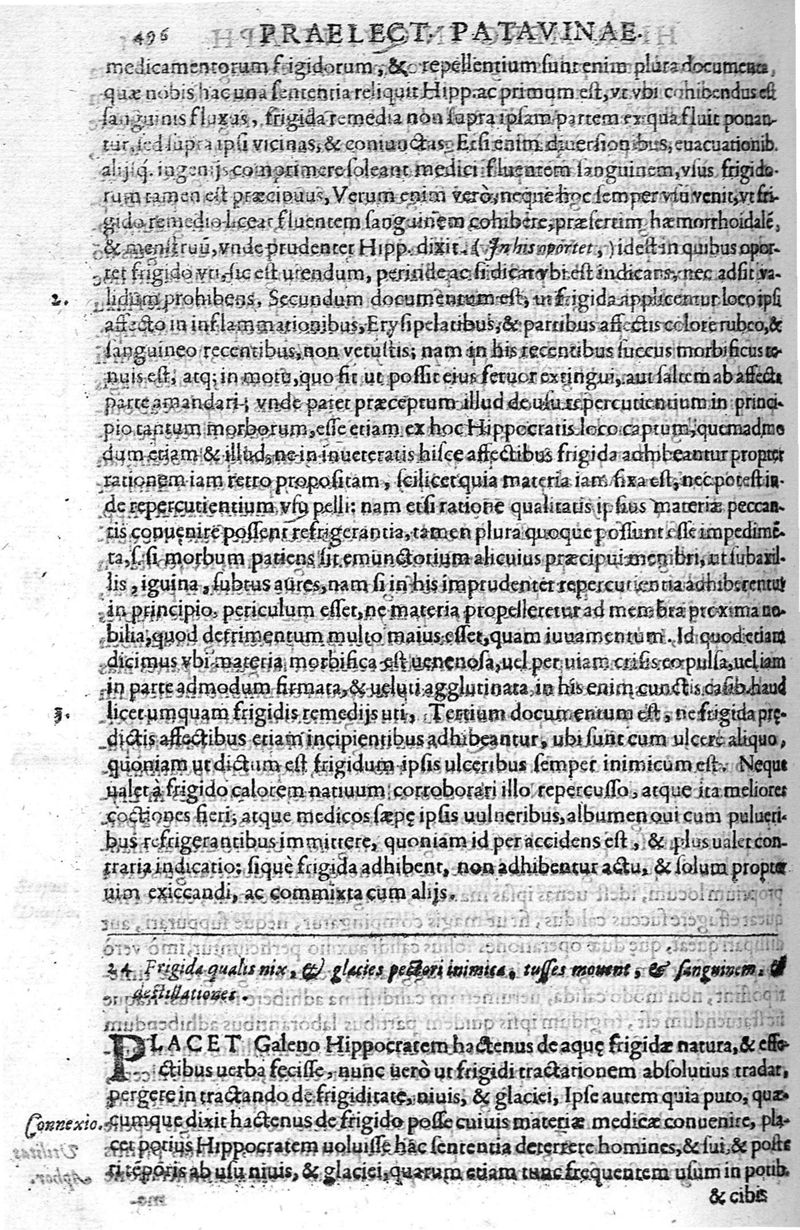 496 PRAELECT. PATAVINAE.
medicamentorum frigidorum, & repellentium sunt enim plura documenta,
quæ nobis hac una sententia reliquit Hipp. ac primum est, vt vbi cohibendus est
sanguinis fluxus, frigida remedia non supra ipsam partem ex qua fluit ponan-
tur, sed supra ipsi vicinas, & coniunctas. Etsi enim diuersionibus, euacuationib.
alijsq. ingenijs comprimere soleant medici fluentem sanguinem, vsus frigido-
rum tamen est præcipuus, Verum enim verò, neque hoc semper vsu venit, vt fri-
gido remedio liceat fluentem sanguinem cohibere, præsertim hæmorrhoidalẽ,
& menstruũ, vnde prudenter Hipp. dixit. (In his oportet,) idest in quibus opor-
tet frigido vti, sic est utendum, perinde ac si dicat vbi est indicans, nec adsit va-
2. lidum prohibens. Secundum documentum est, ut frigida applicentur loco ipsi
affecto in inflammationibus, Erysipelatibus, & partibus affectis colore rubeo, &
sanguineo recentibus, non vetustis; nam in his recentibus succus morbificus te-
nuis est, atq; in motu, quo fit ut possit eius feruor extingui, aut saltem ab affecta
parte amandari; vnde patet præceptum illud de usu repercutientium in princi-
pio tantum morborum, esse etiam ex hoc Hippocratis loco captum; quemadmo
dum etiam & illud, ne in inueteratis hisce affectibus frigida adhibeantur propter
rationem iam retro propositam, scilicet quia materia iam fixa est, nec potest in-
de repercutientium vsu pelli: nam etsi ratione qualitatis ipsius materiæ peccan-
tis conuenire possent refrigerantia, tamen plura quoque possunt esse impedimẽ-
ta, s. si morbum patiens sit emunctorium alicuius præcipui mẽmbri, ut subaxil-
lis, iguina, subtus aures, nam si in his imprudenter repercutientia adhiberentur
in principio, periculum esset, ne materia propelleretur ad membra proxima no-
bilia, quod detrimentum multo maius esset, quam iuuamentum. Id quod etiam
dicimus vbi materia morbifica est uenenosa, uel per uiam crisis eo pulsa, uel iam
in parte admodum firmata, & ueluti agglutinata, in his enim cunctis casib. haud
3. licet umquam frigidis remedijs uti, Tertium documentum est, ne frigida prę-
dictis affectibus etiam incipientibus adhibeantur, ubi sunt cum ulcere aliquo,
quoniam ut dictum est frigidum ipsis ulceribus semper inimicum est. Neque
ualet à frigido calorem natiuum corroborari illo repercusso, atque ita meliores
coctiones fieri, atque medicos sæpę ipsis uulneribus, albumen oui cum pulueri-
bus refrigerantibus immittere, quoniam id per accidens est, & plus ualet con-
traria indicatio; siquè frigida adhibent, non adhibentur actu, & solum propter
uim exiccandi, ac commixta cum alijs.
24 Frigida qualis nix, & glacies pectori inimica, tusses mouent, & sanguinem, &
destillationes.
PLACET Galeno Hippocratem hactenus de aquę frigidæ natura, & effe-
ctibus uerba fecisse, nunc uerò ut frigidi tractationem absolutius tradat,
pergere in tractando de frigiditate, niuis, & glaciei, Ipse autem quia puto, quæ-
Connexio. cumque dixit hactenus de frigido posse cuiuis materiæ medicæ conuenire, pla-
cet potius Hippocratem uoluisse hac sententia deterrere homines, & sui, & poste
ri tẽporis ab usu niuis, & glaciei, quarum etiam tunc frequentem usum in potib.
& cibis